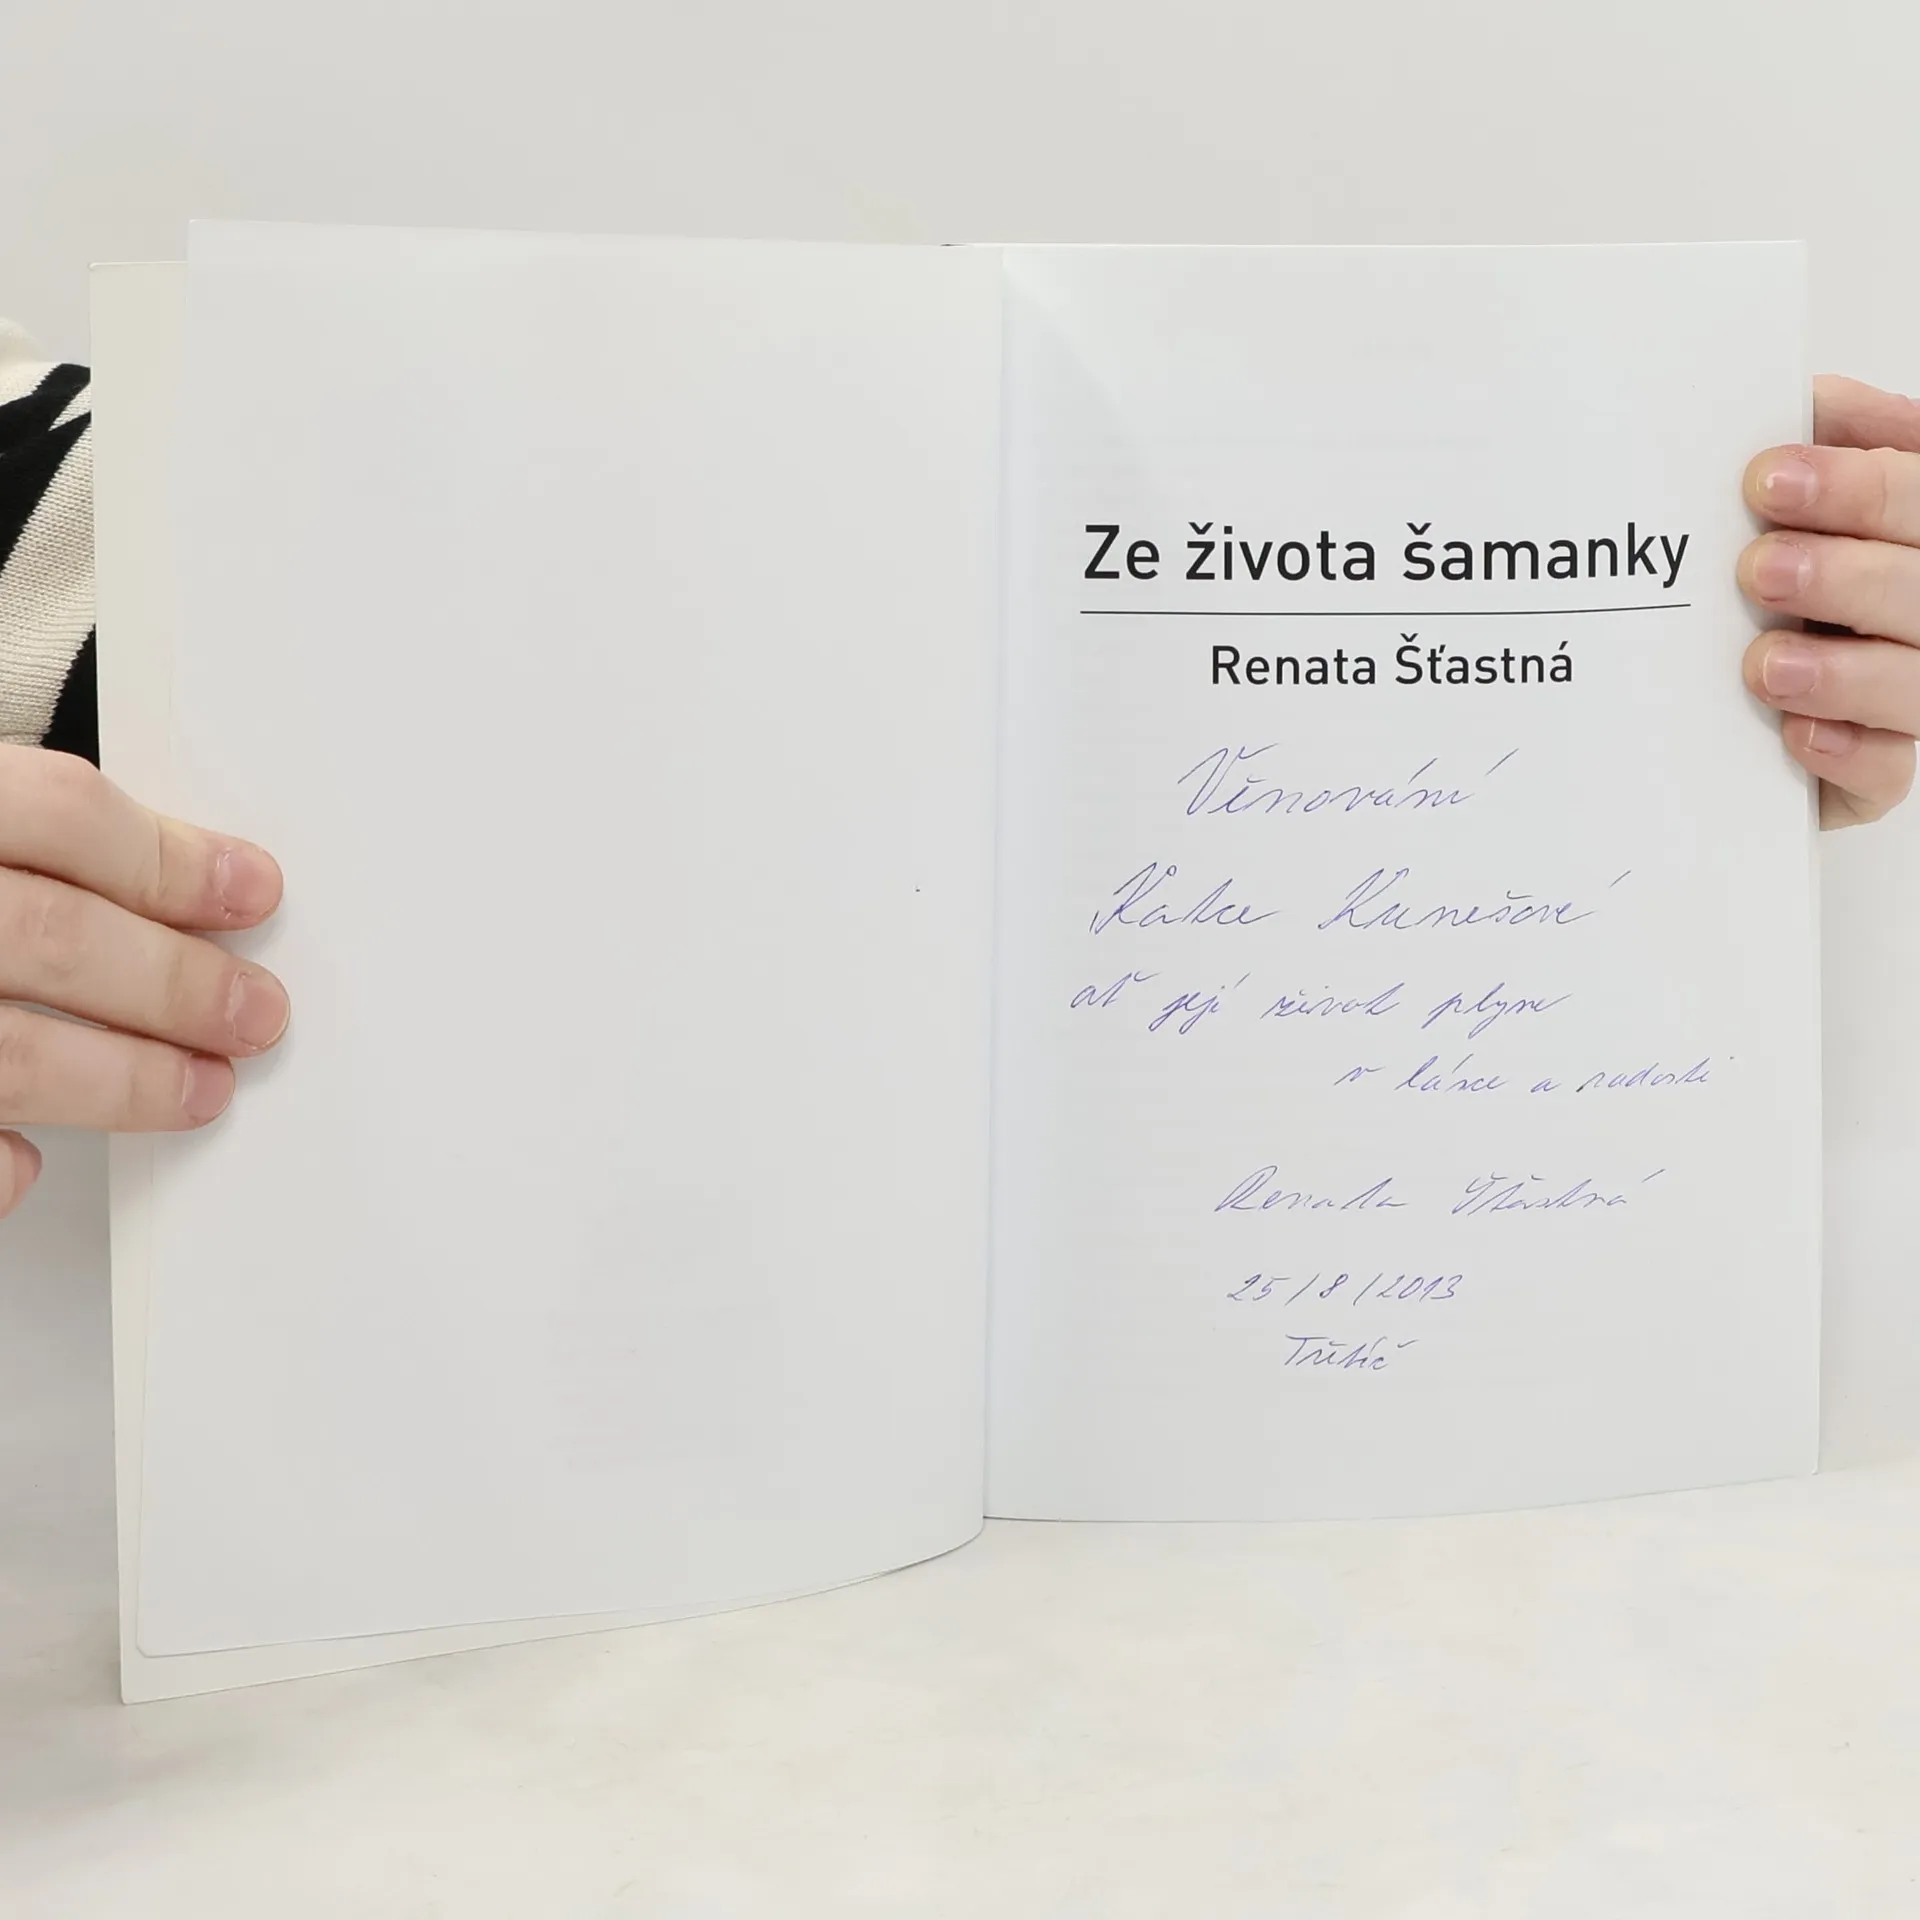 Ze života šamanky
Renata Šťastná
Věnování
Katce Kunešové
ať její život plyne
v lásce a radosti
Renata Šťastná
25/8/2013
Třebíč